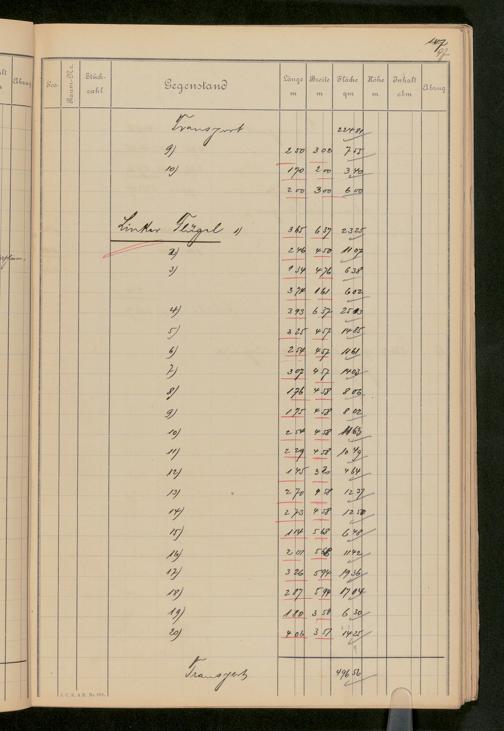 147
97.
Pos. Raum-Nr. Stück-zahl Gegenstand Länge m Breite m Fläche qm Höhe m Inhalt cbm Abzug
Transport 224 81
9) 2 50 3 02 7 55
10) 1 70 2 00 3 40
2 00 3 00 6 00
Linker Flügel 1) 3 65 6 37 23 25
2) 2 46 4 50 11 07
3) 1 34 4 76 6 38
3 74 1 61 6 02
4) 3 93 6 37 25 03
5) 3 25 4 57 14 85
6) 2 54 4 57 11 61
7) 3 07 4 57 14 03
8) 1 76 4 58 8 06
9) 1 75 4 58 8 02
10) 2 54 4 58 11 63
11) 2 29 4 58 10 49
12) 1 45 3 20 4 64
13) 2 70 4 58 12 37
14) 2 73 4 58 12 50
15) 1 14 5 68 6 48
16) 2 01 5 68 11 42
17) 3 26 5 94 19 36
18) 2 87 5 94 17 04
19) 1 80 3 50 6 30
20) 4 06 3 51 14 25
Transport 496 56